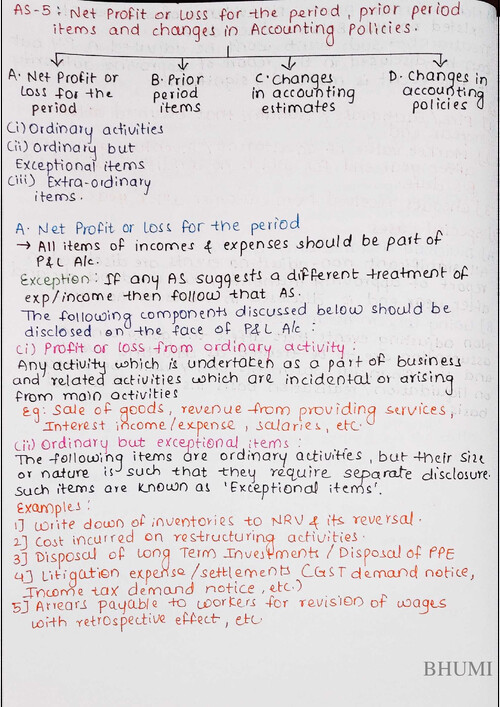 AS-5: Net Profit or Loss for the period, prior period
items and changes in Accounting Policies.
A. Net Profit or Loss for the period
B. Prior period items
C. Changes in accounting estimates
D. Changes in accounting policies
(i) Ordinary activities
(ii) Ordinary but
Exceptional items
(iii) Extra-ordinary
items.
A. Net Profit or loss for the period
→ All items of incomes & expenses should be part of
P&L A/c.
Exception: If any AS suggests a different treatment of
exp/income then follow that AS.
The following components discussed below should be
disclosed on the face of P&L A/c:
(i) Profit or loss from ordinary activity:
Any activity which is undertaken as a part of business
and related activities which are incidental or arising
from main activities
Eg: Sale of goods, revenue from providing services,
Interest income/expense, salaries, etc.
(ii) Ordinary but exceptional items:
The following items are ordinary activities, but their size
or nature is such that they require separate disclosure.
such items are known as 'Exceptional items'.
Examples:
1] Write down of inventories to NRV & its reversal.
2] Cost incurred on restructuring activities.
3] Disposal of Long Term Investments/Disposal of PPE
4] Litigation expense/settlements (GST demand notice,
Income tax demand notice, etc.)
5] Arrears payable to workers for revision of wages
with retrospective effect, etc
BHUMI